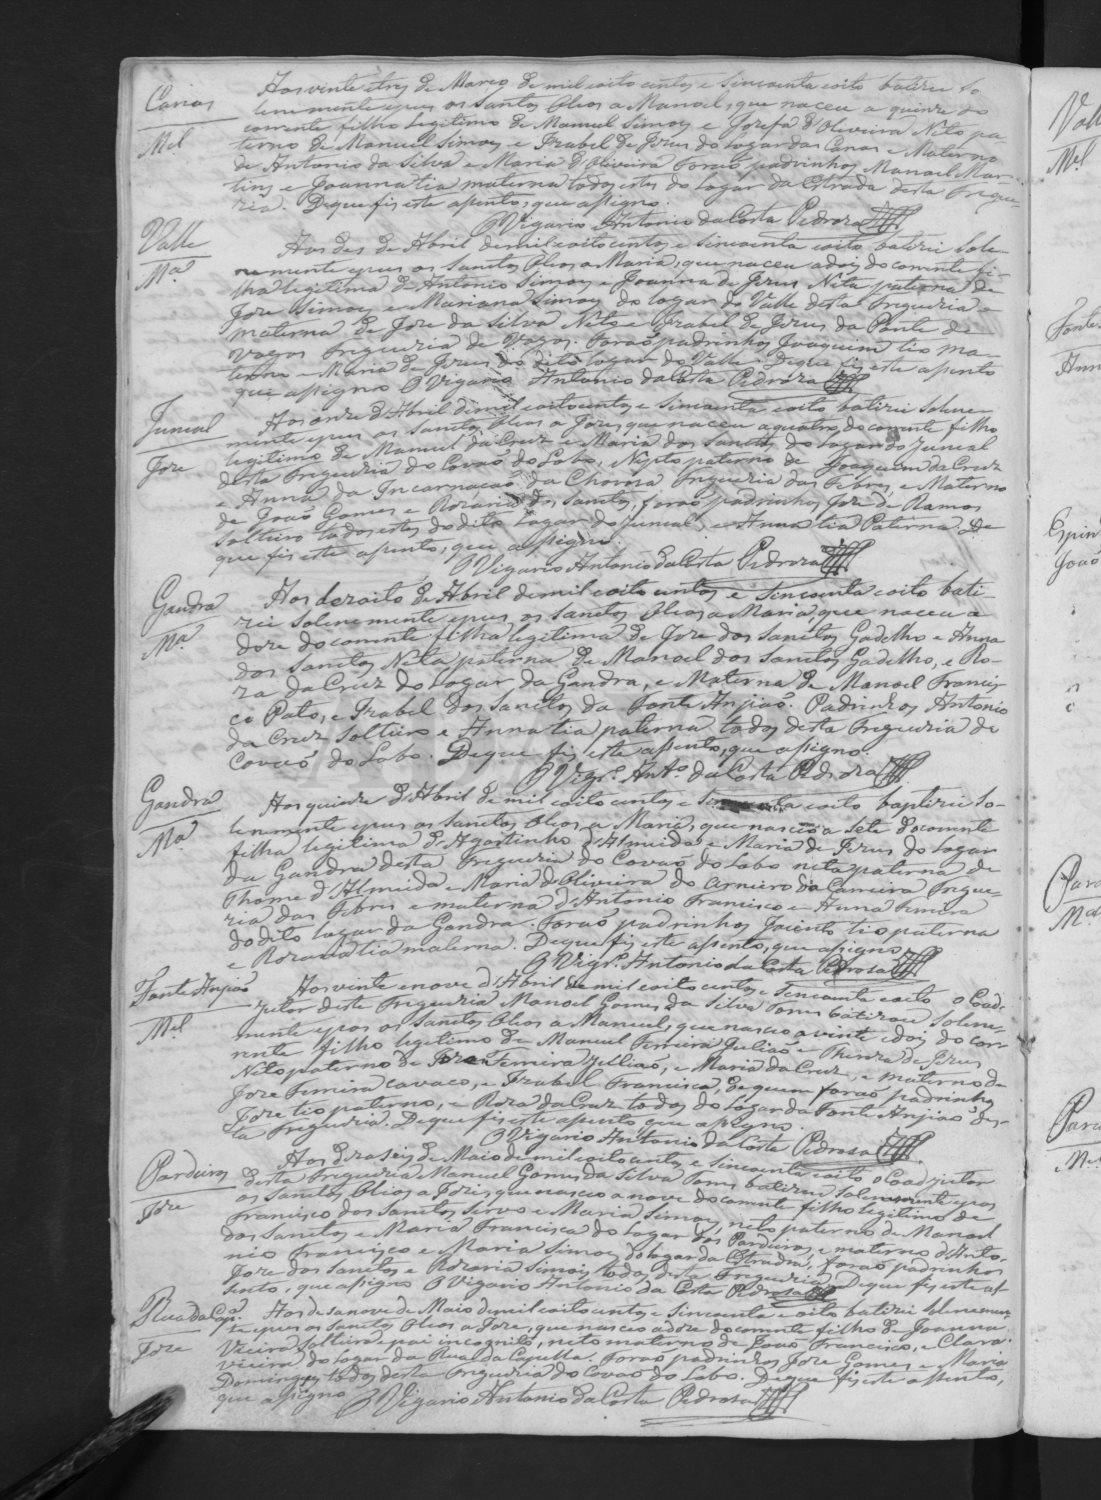 Canas
Mel
Aos vinte e tres de Março de mil oito centos e sincoenta e oito batizei so
lenemente e pus os Santos Oleos a Manoel, que naceu a quinze do
corrente filho legitimo de Manuel Simoes e Jozefa d'Oliveira Neto pa-
terno de Manuel Simoes e Izabel de Jezus do Logar das Canas e Materno
de Antonio da Silva e Maria d'Oliveira forão padrinhos Manoel Mar-
tins e Joanna tia materna todos estes do Logar da Estrada desta Fregue-
zia. De que fis este asento, que asigno.
O Vigario Antonio da Costa Pedroza
Valle
Ma.
Aos des de Abril de mil oito centos e sincoenta e oito batizei sole-
nemente e pus os Santos Oleos a Maria, que naceu a dois do corrente fi-
lha legitima de Antonio Simoes e Joanna de Jezus Neta paterna de
Joze Simoes e Mariana Simoes do logar do Valle desta Freguezia e
materna de Joze da Silva Neto e Izabel de Jezus da Ponte de
Vagos Freguezia de Vagos. Forão padrinhos Joaquim tio ma-
terno e Maria de Jezus do dito logar do Valle. De que fis este asento
que asigno O Vigario Antonio da Costa Pedroza
Juncal
Joze
Aos onze d'Abril de mil oito centos e sincoenta e oito batizei solene-
mente e pus os Santos Oleos a Joze, que naceu a quatro do corrente filho
legitimo de Manuel da Cruz e Maria dos Santos do Logar do Juncal
desta Freguezia do Covão do Lobo, Nepto paterno de Joaquim da Cruz
e Anna da Incarnacão da Chorosa Freguezia das Febres, e Materno
de João Gomes e Rozaria dos Santos, forão padrinhos Joze de Ramos
Solteiro todos estes do dito Logar do Juncal, e Anna tia Paterna. De
que fis este asento, que asigno.
O Vigario Antonio da Costa Pedroza
Gandra
Ma.
Aos dezoito de Abril de mil oito centos e sincoenta e oito bati-
zei solenemente e pus os Santos Oleos a Maria, que naceu a
doze do corrente filha legitima de Joze dos Santos Gadelho e Anna
dos Santos Neta paterna de Manoel dos Santos Gadelho, e Ro-
za da Cruz do Logar da Gandra, e Materna de Manoel Francis-
co Pato, e Izabel dos Santos da Fonte Anjião. Padrinhos Antonio
da Cruz Solteiro e Anna tia paterna todos desta Freguezia de
Covão do Lobo. De que fis este asento, que asigno.
O Vigr.º Ant.º da Costa Pedroza
Gandra
Ma
Aos quinze d'Abril de mil oito centos e sincoenta e oito baptizei so-
lenemente e pus os Santos Oleos a Maria, que nasceo a sete do corrente
filha legitima d'Agostinho d'Almeida e Maria de Jezus do Logar
da Gandra desta Freguezia do Covão do Lobo neta paterna de
Thome d'Almeida e Maria d'Oliveira do Carneiro da Carreira Fregue-
zia das Febres e materna d'Antonio Francisco e Anna Ferreira
do dito logar da Gandra. Forão padrinhos Jacinto tio paterna
e Rozaria tia materna. De que fis este asento, que asigno
O Vigr.º Antonio da Costa Pedrosa
Fonte Anjião
Mel
Aos vinte e nove d'Abril de mil oito centos e sincoenta e oito o Coad-
jutor desta Freguezia Manoel Gomes da Silva Torres batizou solene-
mente e pos os Santos Oleos a Manuel, que nasceo a vinte e dois do cor-
rente filho legitimo de Manuel Ferreira Julião e Thereza de Jezus
Neto paterno de Ferreira Jullião, e Maria da Cruz, e materno de
Joze Ferreira cavaco, e Izabel Francisca, de quem forão padrinhos
Joze tio paterno, e Roza da Cruz todos do Logar da Fonte Anjião des-
ta Freguezia. De que fis este asento que asigno.
O Vigario Antonio da Costa Pedrosa
Pardeiros
Joze
Aos dezaseis de Maio de mil oito centos e sincoenta e oito o Coadjutor
desta Freguezia Manuel Gomes da Silva Torres batizou Solenemente e pos
os Santos Oleos a Joze, que nasceo a nove do corrente filho legitimo de
Francisco dos Santos Servo e Maria Simoes, neto paterno de Manoel
dos Santos e Maria Francisca do Logar dos Pardeiros, e materno d'Anto-
nio Francisco e Maria Simoes do logar da Estrada, forão padrinhos
Joze dos Santos e Rozaria Simois todos desta Freguezia De que fis este as-
sento, que asigno O Vigario Antonio da Costa Pedrosa
Rua da Capª.
Joze
Aos desanove de Maio de mil oito centos e sincoenta e oito batizei solenemen-
te e pus os Santos Oleos a Joze, que nasceo a doze do corrente filho de Joanna
Vieira Solteira, e pai incognito, neto materno de João Francisco, e Clara
vieira do logar da Rua da Capella. Forão padrinhos Joze Gomes e Maria
Domingues todos desta Freguezia do Covão do Lobo. De que fis este asento,
que asigno O Vigario Antonio da Costa Pedrosa
Mel.
Anna
João